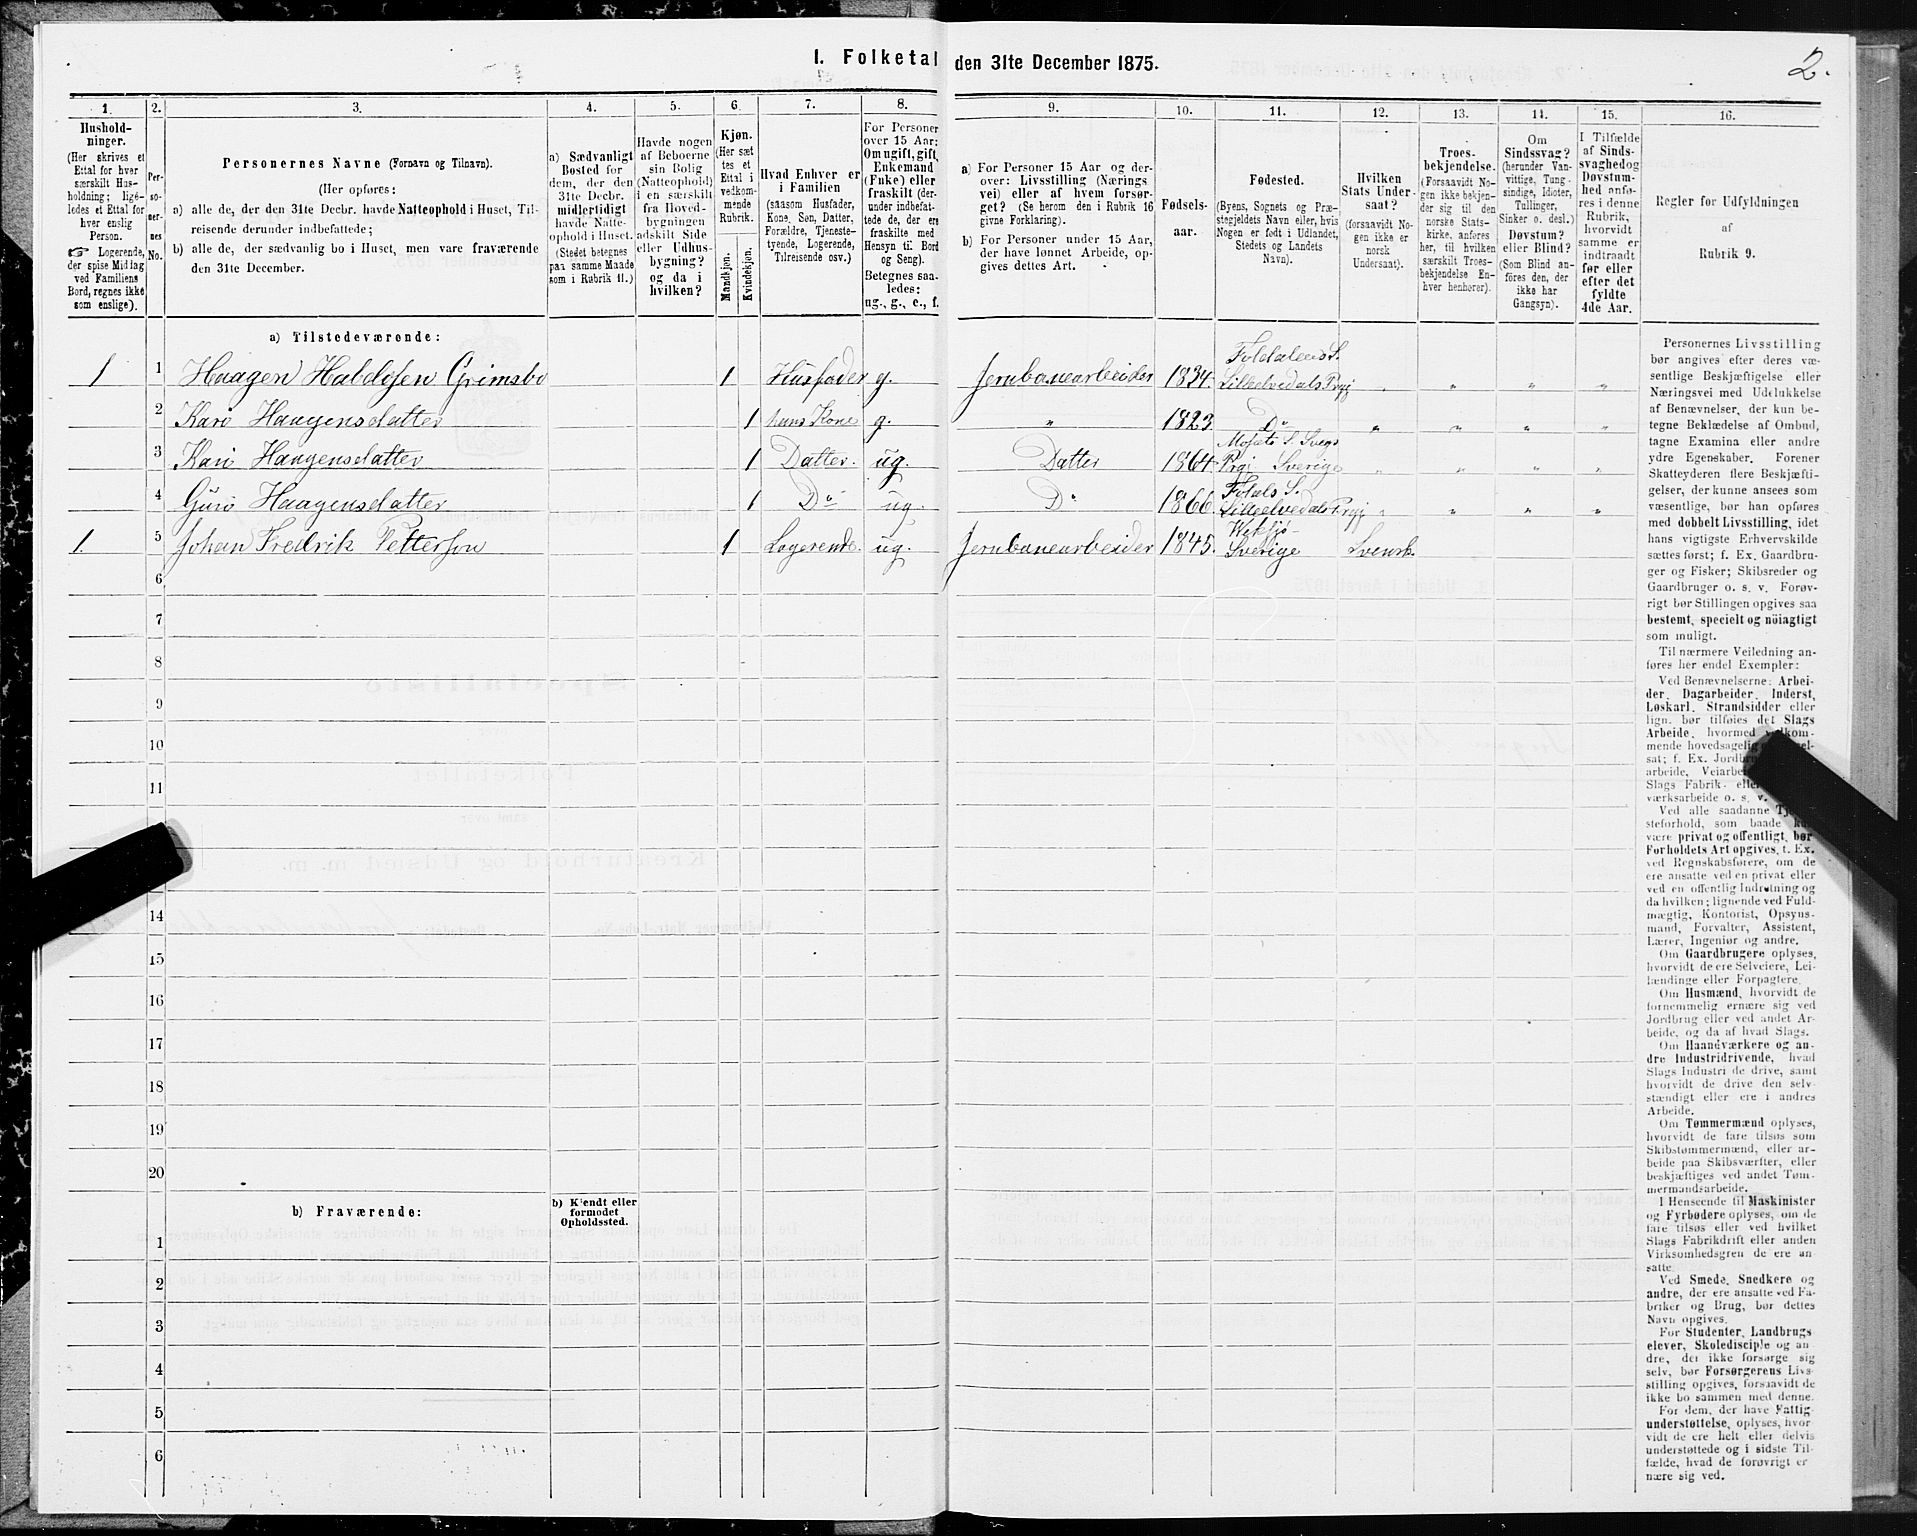 I. Folketal den 31te December 1875.
2.
1.
2.
3.
4.
5.
6.
7.
8.
9.
10.
11.
12.
13.
14.
15.
16.
Hushold-
ninger.
(Her skrives et
Ettal for hver
særskilt Hus-
holdning; lige-
ledes et Ettal for
hver enslig
Person.
☞ Logerende,
der spise Middag
ved Familiens
Bord, regnes ikke
som enslige).
Per-
so-
ner-
nes
No.
Personernes Navne (Fornavn og Tilnavn).
(Her opføres:
a) alle de, der den 31te Decbr. havde Natteophold i Huset, Til-
reisende derunder indbefattede;
b) alle de, der sædvanlig bo i Huset, men vare fraværende
den 31te December.
a) Sædvanligt
Bosted for
dem, der den
31te Decbr.
midlertidigt
havde Natte-
ophold i Huset.
(Stedet betegnes
paa samme Maade
som i Rubrik 11.)
Havde nogen
af Beboerne
sin Bolig
(Natteophold)
i en særskilt
fra Hoved-
bygningen
adskilt Side
eller Udhus-
bygning?
og da i
hvilken?
Kjøn.
(Her sæt
tes et
Ettal i
vedkom-
mende
Rubrik.
Mandkjøn.
Kvindekjøn.
Hvad Enhver er
i Familien
(saasom Husfader,
Kone, Søn, Datter,
Forældre, Tjeneste-
tyende, Logerende,
Tilreisende osv.)
For Personer
over 15 Aar:
Om ugift, gift,
Enkemand
(Enke) eller
fraskilt (der-
under indbefat-
tede de, der ere
fraskilte med
Hensyn til Bord
og Seng).
Betegnes saa-
ledes:
ug., g., e., f.
a) For Personer 15 Aar og der-
over: Livsstilling (Nærings
vei) eller af hvem forsør-
get? (Se herom den i Rubrik 16
givne Forklaring).
b) For Personer under 15 Aar,
der have lønnet Arbeide, op-
gives dettes Art.
Fødsels-
aar.
Fødested.
(Byens, Sognets og Præ-
stegjeldets Navn eller, hvis
Nogen er født i Udlandet,
Stedets og Landets
Navn).
Hvilken
Stats Under-
saat?
(forsaavidt No-
gen ikke er
norsk
Undersaat).
Troes-
bekjendelse.
(Forsaavidt No-
gen ikke bekjen-
der sig til den
norske Stats-
kirke, anføres
her, til hvilken
særskilt Troes-
bekjendelse En-
hver henhører).
Om
Sindssvag?
(herunder Van-
vittige, Tung-
sindige, Idioter,
Tullinger,
Sinker o. desl.)
Døvstum?
eller Blind?
(Som Blind an-
føres den, der
ikke har
Gangsyn).
I Tilfælde
af Sinds-
svaghed og
Døvstum-
hed anfø-
res i denne
Rubrik,
hvorvidt
samme er
indtraadt
før eller
efter det
fyldte
4de Aar.
Regler for Udfyldningen
af
Rubrik 9.
a) Tilstedeværende:
1 1 Haagen Haldosen Grimsbo 1 Husfader g. Jernbanearbeider 1834. Foldalens S. Lilleelvedals Prgj
2 Kari Haagensdatter 1 hans Kone g. " 1823 Do
3 Kari Haagensdatter 1 Datter. ug. Datter 1864 Prgj Sverige
4 Guro Haagensdatter 1 Do ug. Do 1866 Foldals S. Lilleelvedals Prgj
1. 5 Johan Fredrik Petterson 1 Logerende. ug. Jernbanearbeider 1845. Wexsjø Sverige Svensk.
6
7
8
9
10
11
14
15
16
17
18
19
20
b) Fraværende:
b) Kjendt eller
formodet
Opholdssted.
1
2
3
4
5
6
Personernes Livsstilling
bør angives efter deres væ-
sentlige Beskjæftigelse eller
Næringsvei med Udelukkelse
af Benævnelser, der kun be-
tegne Beklædelse af Ombud,
tagne Examina eller andre
ydre Egenskaber. Forener
Skatteyderen flere Beskjæfti-
gelser, der kunne ansees som
væsentlige, bør han opføres
med dobbelt Livsstilling, idet
hans vigtigste Erhvervskilde
sættes først; f. Ex. Gaardbru-
ger og Fisker; Skibsreder og
Gaardbruger o. s. v. Forøv-
rigt bør Stillingen opgives saa
bestemt, specielt og nöiagtigt
som muligt.
Til nærmere Veiledning an-
føres her endel Exempler:
Ved Benævnelserne: Arbei-
der, Dagarbeider, Inderst,
Løskarl, Strandsidder eller
lign. bør tilføies det Slags
Arbeide, hvormed
mende hovedsagelig
sat; f. Ex.
arbeide,
Slags Fabrik-
værksarbeide o. s. v.
Ved alle saadanne
steforhold, som baade
være privat og offentligt, bør
Forholdets Art opgives, f. Ex.
ved Regnskabsførere, om de
ere ansatte ved en privat eller
ved en offentlig Indretning og
da hvilken; lignende ved Fuld-
mægtig, Kontorist, Opsyns-
mand, Forvalter, Assistent,
Lærer, Ingeniør og andre.
Om Gaardbrugere oplyses,
hvorvidt de ere Selveiere, Lei-
lændinge eller Forpagtere.
Om Husmænd, hvorvidt de
fornemmelig ernære sig ved
Jordbrug eller ved andet Ar-
beide, og da af hvad Slags.
Om Haandværkere og an-
dre Industridrivende, hvad
Slags Industri de drive, samt
hvorvidt de drive den selv-
stændigt eller ere i andres
Arbeide.
Om Tømmermænd oplyses,
hvorvidt de fare tilsøs som
Skibstømmermænd, eller ar-
beide paa Skibsværfter, eller
beskjæftiges ved andet Tøm-
mermandsarbeide.
I Henseende til Maskinister
og Fyrbødere oplyses, om de
fare tilsøs eller ved hvilket
Slags Fabrikdrift eller anden
Virksomhedsgren de ere an-
satte.
Ved Smede, Snedkere og
andre, der ere ansatte ved Fa-
briker og Brug, bør dettes
Navn opgives.
For Studenter, Landbrugs
elever, Skoledisciple og an-
dre, der ikke forsørge sig
selv, bør Forsørgerens Livs-
stilling opgives, forsaavidt de
ikke bo sammen med denne.
For dem, der have Fattig-
understøttelse, oplyses, hvor-
vidt de ere helt eller delvis
understøttede og i sidste Til-
fælde, hvad de forøvrigt er
nære sig ved.